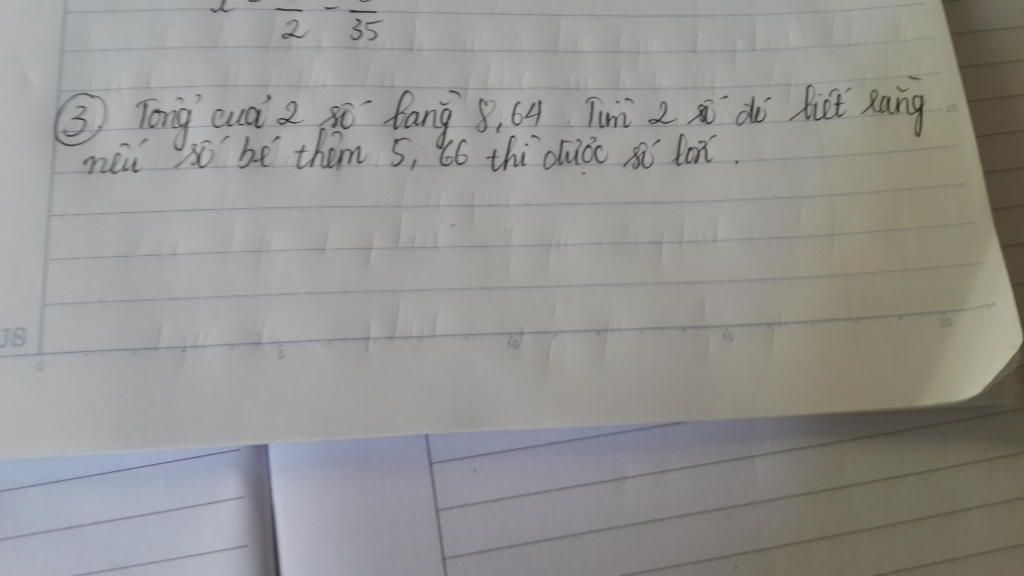 2 - 35
③ Tổng của 2 số bằng 8,64. Tìm 2 số đó biết rằng
nếu số bé thêm 5,66 thì được số lớn.
JS
0 5 10 15 20